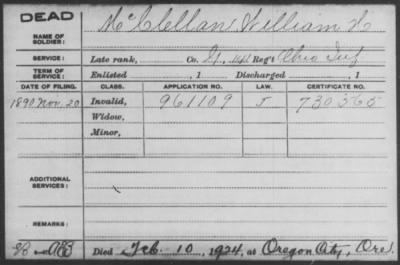 DEAD
NAME OF SOLDIER: McClellan William H
SERVICE: Late rank, Co. Reg't Ohio Inf
TERM OF SERVICE: Enlisted , 1 Discharged , 1
DATE OF FILING. CLASS. APPLICATION NO. LAW. CERTIFICATE NO.
1890 Nov. 20 Invalid, 961109 J 730565
Widow,
Minor,
ADDITIONAL SERVICES:
REMARKS:
Died Feb. 10, 1924, at Oregon City, Ore.